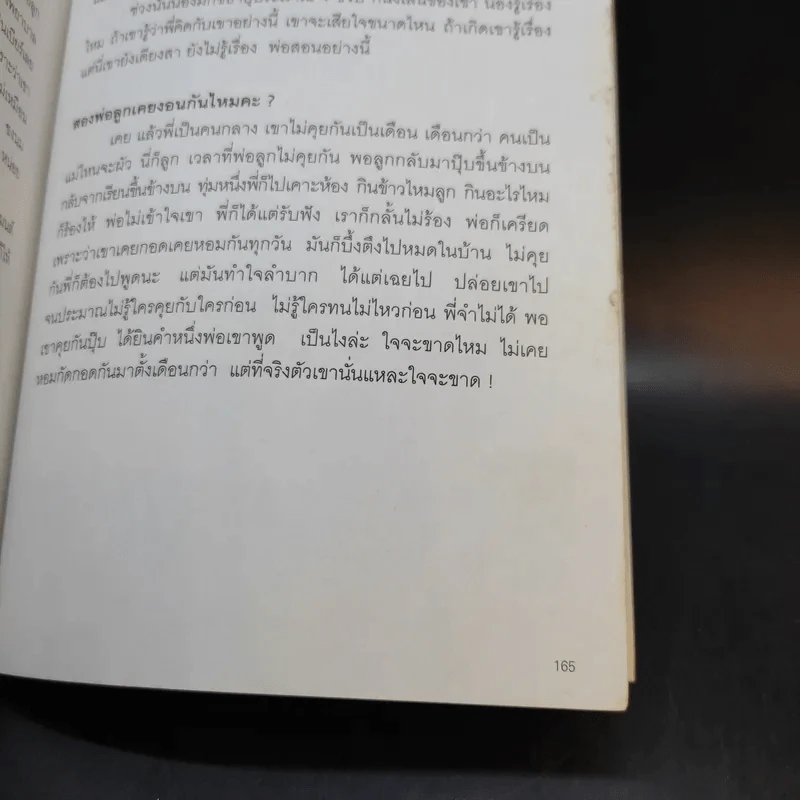 ไหม ถ้าเขารู้ว่าพี่คิดกับเขาอย่างนี้ เขาจะเสียใจขนาดไหน ถ้าเกิดเขารู้เรื่อง
แต่นี่เขายังเดียงสา ยังไม่รู้เรื่อง พ่อสอนอย่างนี้
สองพ่อลูกเคยงอนกันไหมคะ ?
เคย แล้วพี่เป็นคนกลาง เขาไม่คุยกันเป็นเดือน เดือนกว่า คนเป็น
แม่ไหนจะผัว นี่ก็ลูก เวลาที่พ่อลูกไม่คุยกัน พอลูกกลับมาปุ๊บขึ้นข้างบน
กลับจากเรียนขึ้นข้างบน ทุ่มหนึ่งพี่ก็ไปเคาะห้อง กินข้าวไหมลูก กินอะไรไหม
ก็ร้องไห้ พ่อไม่เข้าใจเขา พี่ก็ได้แต่รับฟัง เราก็กลั้นไม่ร้อง พ่อก็เครียด
เพราะว่าเขาเคยกอดเคยหอมกันทุกวัน มันก็บึ้งตึงไปหมดในบ้าน ไม่คุย
กันพี่ก็ต้องไปพูดนะ แต่มันทำใจลำบาก ได้แต่เฉยไป ปล่อยเขาไป
จนประมาณไม่รู้ใครคุยกับใครก่อน ไม่รู้ใครทนไม่ไหวก่อน พี่จำไม่ได้ พอ
เขาคุยกันปุ๊บ ได้ยินคำหนึ่งพ่อเขาพูด เป็นไงล่ะ ใจจะขาดไหม ไม่เคย
หอมกัดกอดกันมาตั้งเดือนกว่า แต่ที่จริงตัวเขานั่นแหละใจจะขาด !
165